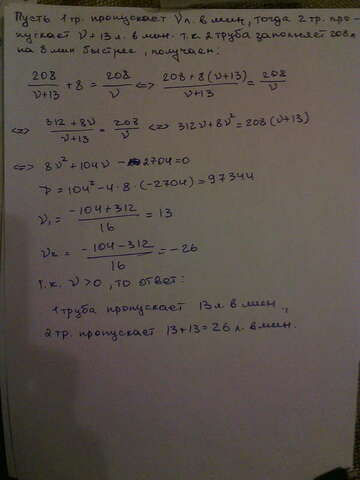 Пусть 1 тр. пропускает v л. в мин, тогда 2 тр. про-
пускает v+13 л. в мин. т.к 2 труба заполняет 208л
на 8 мин быстрее, получаем:
208/(v+13) + 8 = 208/v <=> (208+8(v+13))/(v+13) = 208/v
<=> (312+8v)/(v+13) = 208/v <=> 312v+8v² = 208(v+13)
<=> 8v²+104v - 2704=0
D=104²-4·8·(-2704)=97344
v₁ = (-104+312)/16 = 13
v₂ = (-104-312)/16 = -26
т.к. v>0, то ответ:
1 труба пропускает 13 л в мин.,
2 тр. пропускает 13+13=26 л. в мин.